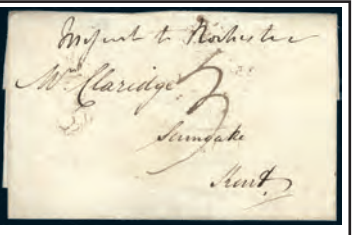 Missent to Rochester
Mr. Claridge
Sungate
Kent